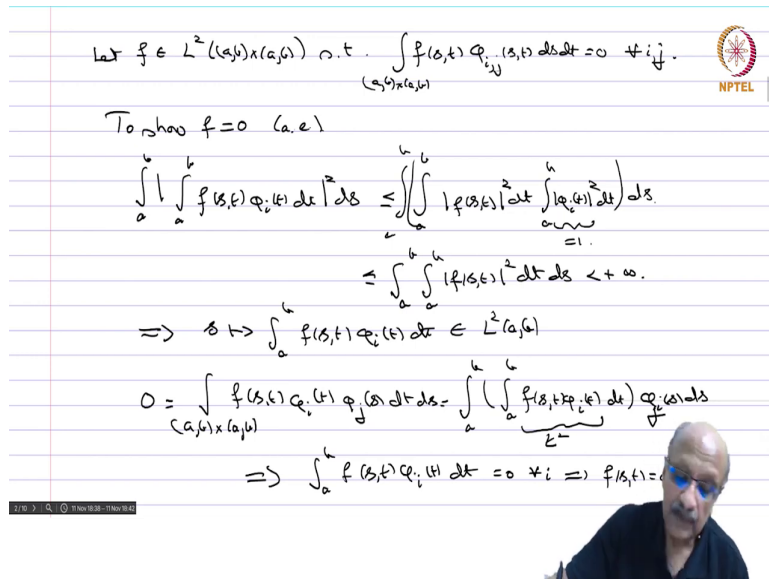 Let f ∈ L²((a,b)×(a,b)) s.t. ∫_{(a,b)×(a,b)} f(s,t) φ_{ij}(s,t) ds dt = 0 ∀ i,j.
NPTEL
To show f = 0 (a.e)
∫_a^b | ∫_a^b f(s,t) φ_i(t) dt |² ds ≤ ∫_a^b ( ∫_a^b |f(s,t)|² dt ∫_a^b |φ_i(t)|² dt ) ds.
= 1.
≤ ∫_a^b ∫_a^b |f(s,t)|² dt ds < + ∞.
⇒ s ↦ ∫_a^b f(s,t) φ_i(t) dt ∈ L²(a,b)
0 = ∫_{(a,b)×(a,b)} f(s,t) φ_i(t) φ_j(s) dt ds = ∫_a^b ( ∫_a^b f(s,t) φ_i(t) dt ) φ_j(s) ds
L²
⇒ ∫_a^b f(s,t) φ_i(t) dt = 0 ∀ i ⇒ f(s,t) =
2/10 11 Nov 18:38 – 11 Nov 18:42